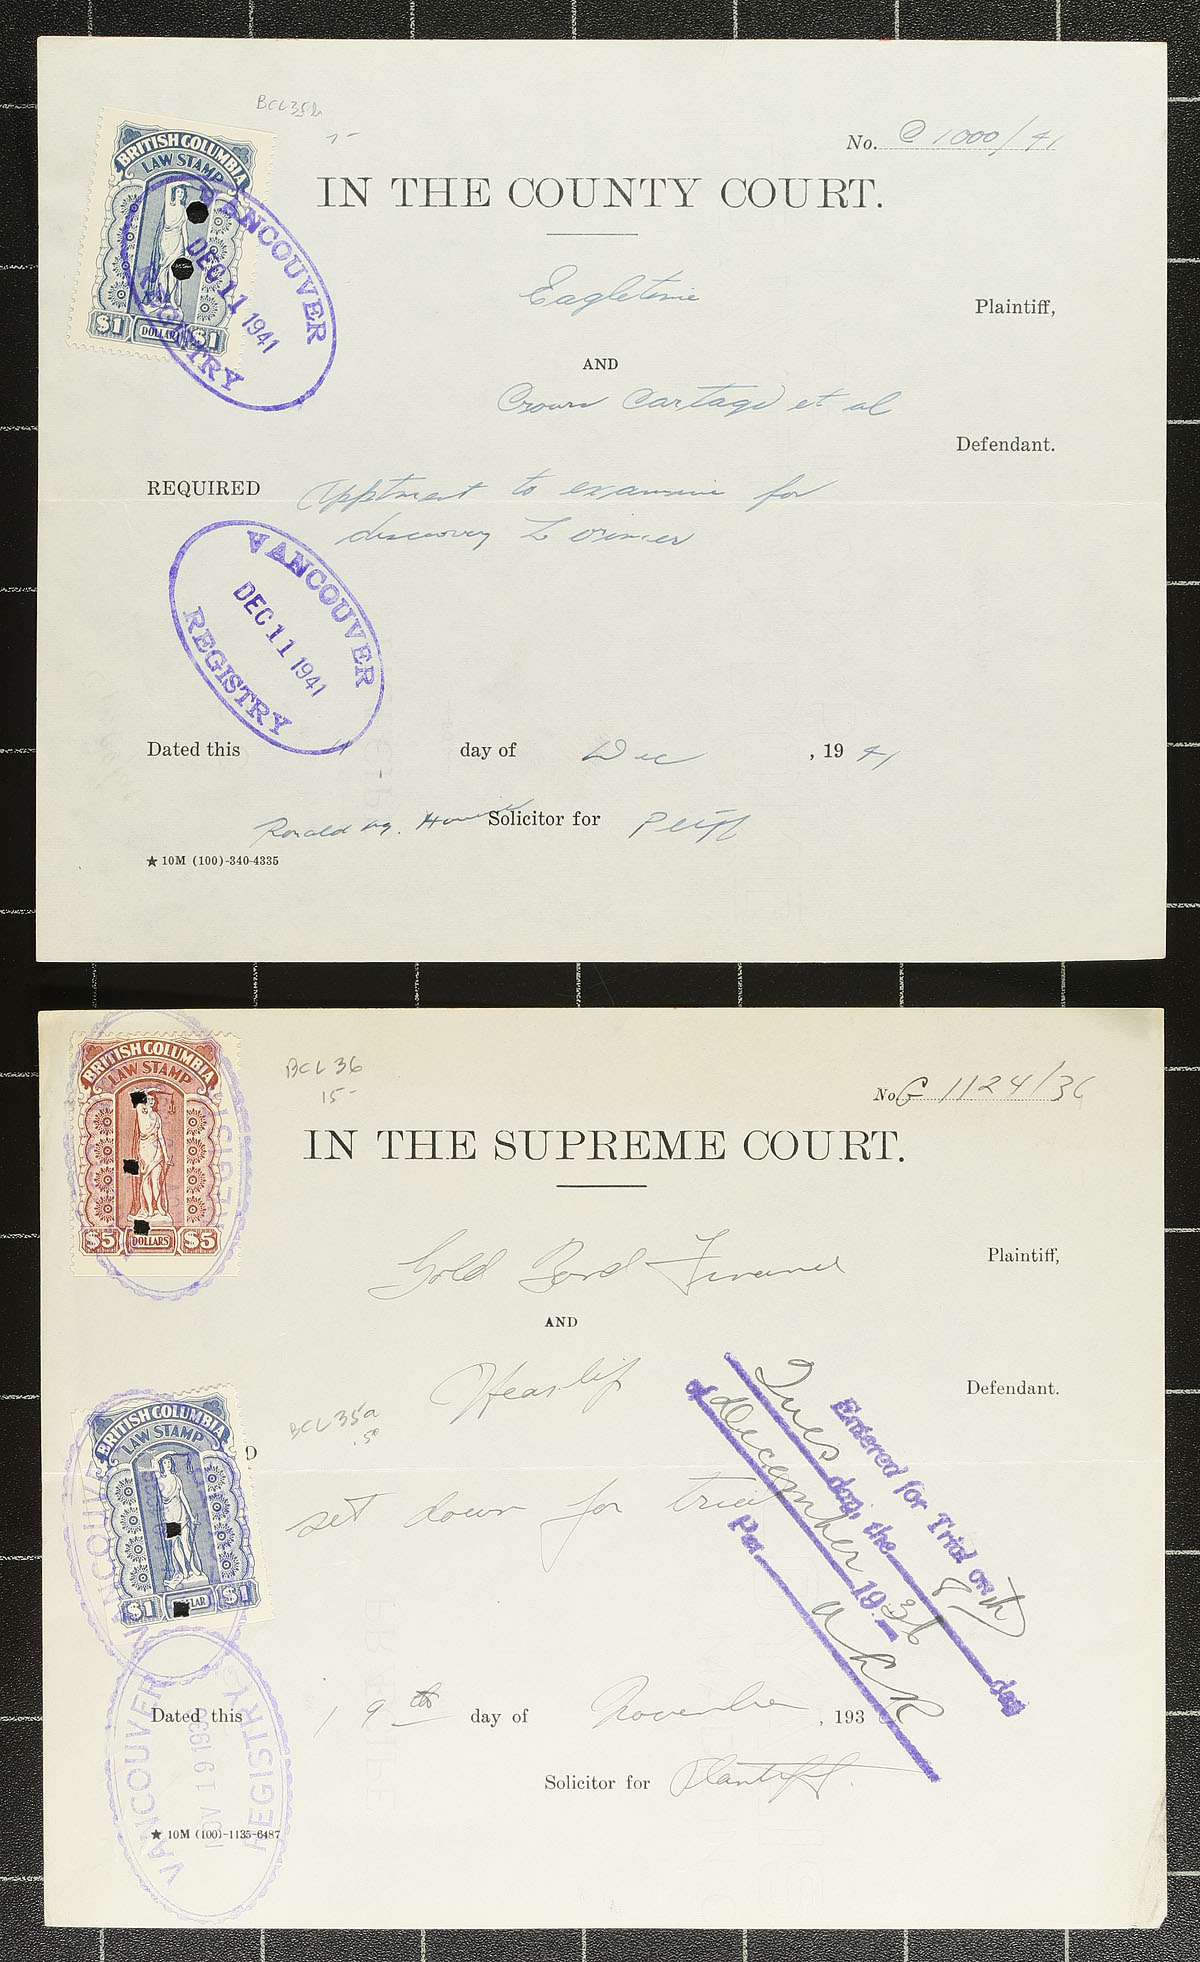 BCL35b
7-
BRITISH COLUMBIA
LAW STAMP
$1 DOLLAR $1
VANCOUVER
DEC 11 1941
REGISTRY
No. C 1000/41
IN THE COUNTY COURT.
Plaintiff,
AND
Crown Cartage et al
Defendant.
REQUIRED Apptment to examine for
discovery
VANCOUVER
DEC 11 1941
REGISTRY
Dated this 11 day of Dec , 19 41
Ronald Solicitor for Pltff
★ 10M (100)-340-4335
BRITISH COLUMBIA
LAW STAMP
$5 DOLLARS $5
REGIS
BCL 36
15-
No. G 1124/36
IN THE SUPREME COURT.
Gold Bond Finance
Plaintiff,
AND
Heaslip
Defendant.
BCL35a
.50
D
BRITISH COLUMBIA
LAW STAMP
$1 LAR $1
VANCOUVE
set down for trial
Entered for Trial on
Tues day, the 8th day
of December 1936
Per
Dated this 19th day of November , 193
Solicitor for Plantiff.
VANCOUVER
NOV 19 1936
REGISTRY
★ 10M (100)-1135-6487